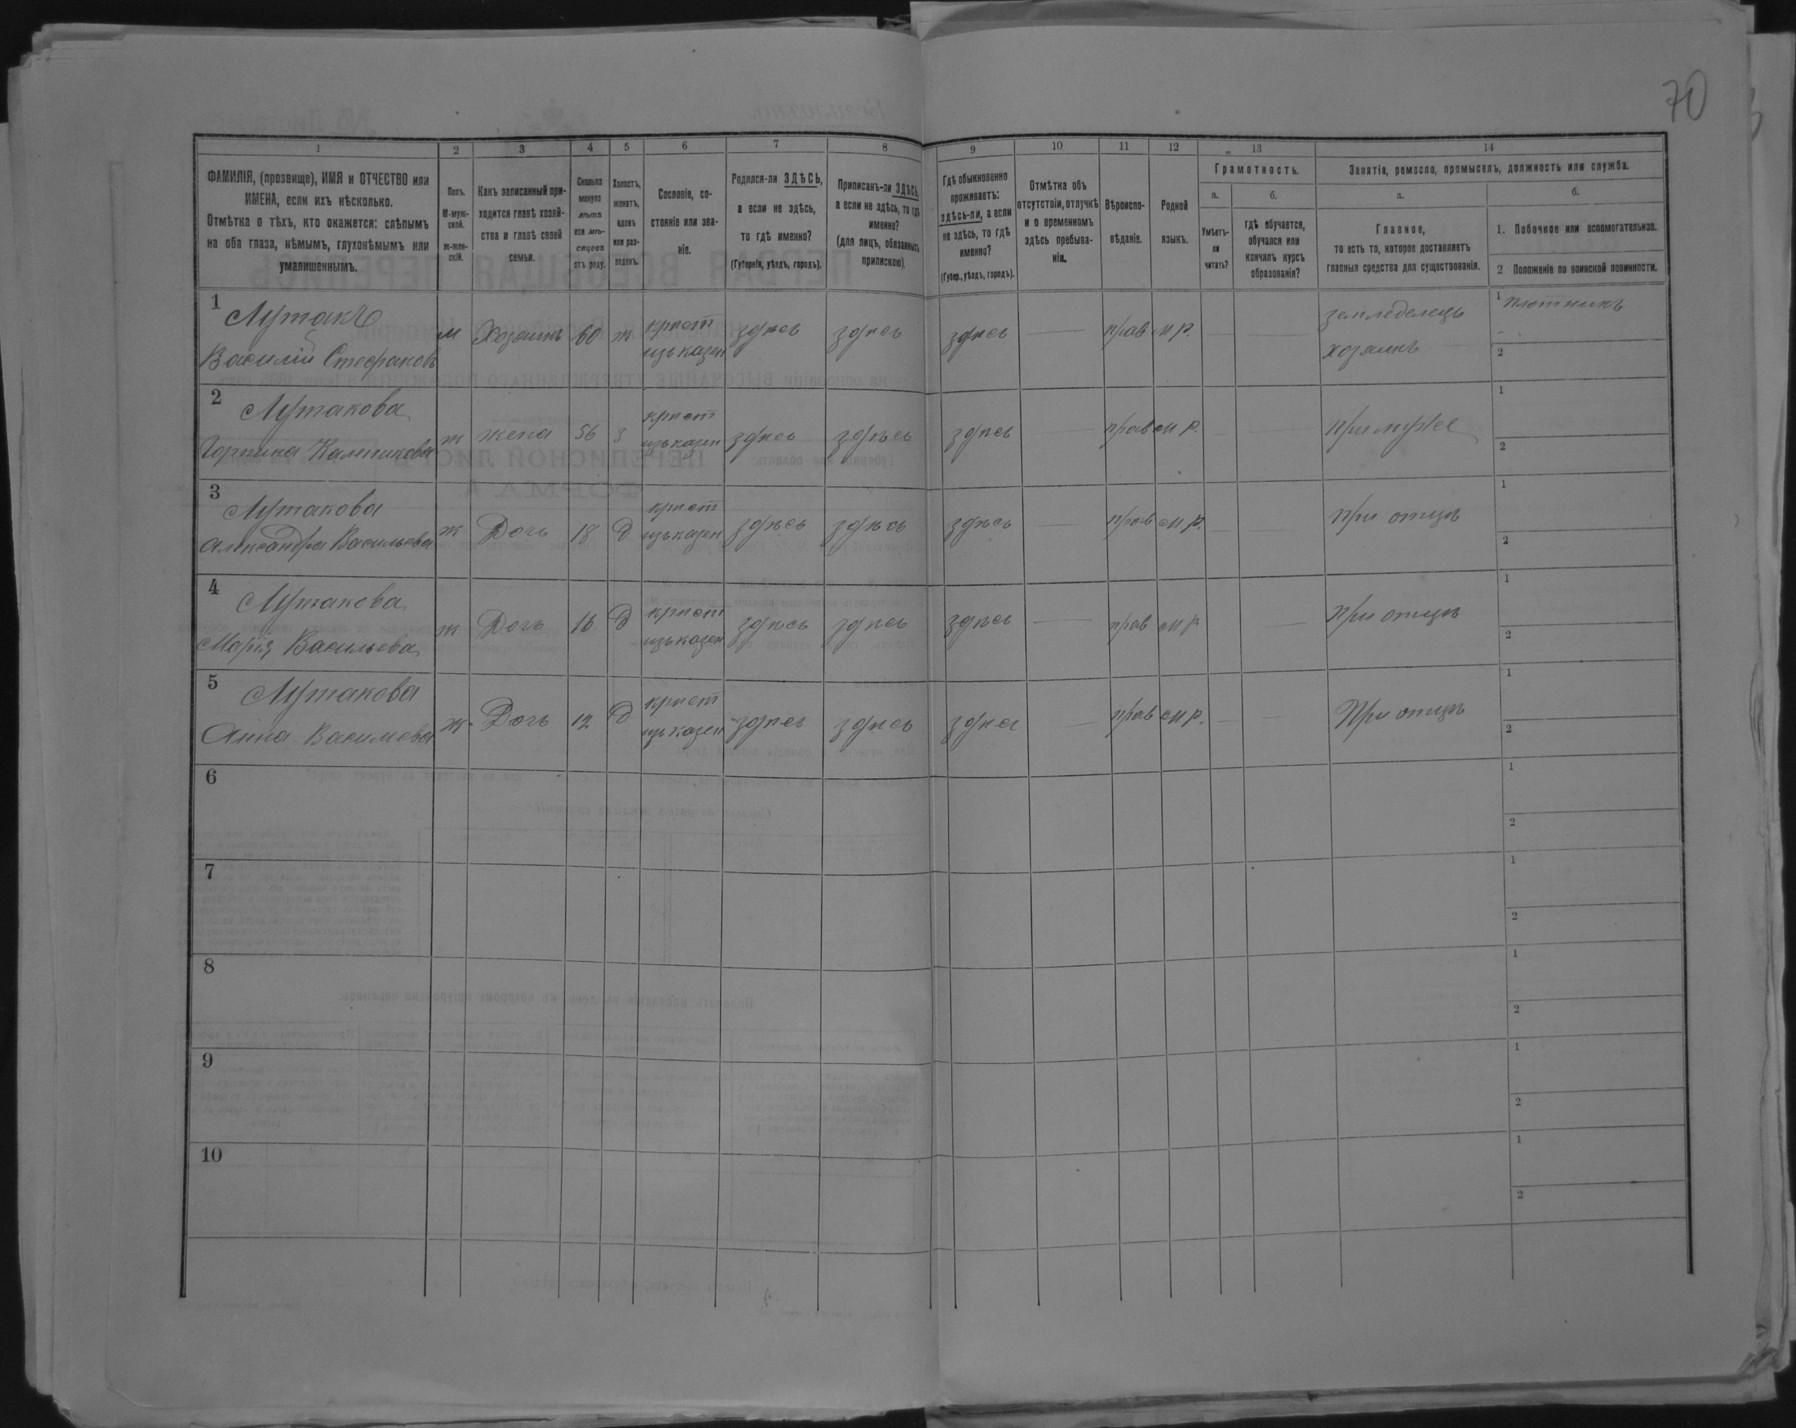 70
1 2 3 4 5 6 7 8 9 10 11 12 13 14
ФАМИЛІЯ, (прозвище), ИМЯ и ОТЧЕСТВО или
ИМЕНА, если ихъ нѣсколько.
Отмѣтка о тѣхъ, кто окажется: слѣпымъ
на оба глаза, нѣмымъ, глухонѣмымъ или
умалишеннымъ.
Полъ.
М-муж-
ской.
ж-жен-
скій.
Какъ записанный при-
ходится главѣ хозяй-
ства и главѣ своей
семьи.
Сколько
минуло
лѣтъ
или мѣ-
сяцевъ
отъ роду.
Холостъ,
женатъ,
вдовъ
или раз-
веденъ.
Сословіе, со-
стояніе или зва-
ніе.
Родился-ли ЗДѢСЬ,
а если не здѣсь,
то гдѣ именно?
(Губернія, уѣздъ, городъ).
Приписанъ-ли ЗДѢСЬ,
а если не здѣсь, то гдѣ
именно?
(для лицъ, обязанныхъ
припискою).
Гдѣ обыкновенно
проживаетъ:
здѣсь-ли, а если
не здѣсь, то гдѣ
именно?
(Губерн., уѣздъ, городъ).
Отмѣтка объ
отсутствіи, отлучкѣ
и о временномъ
здѣсь пребыва-
ніи.
Вѣроиспо-
вѣданіе.
Родной
языкъ.
Грамотность.
а.
Умѣетъ-
ли
читать?
б.
гдѣ обучается,
обучался или
кончилъ курсъ
образованія?
Занятія, ремесло, промыселъ, должность или служба.
а.
Главное,
то есть то, которое доставляетъ
главныя средства для существованія.
б.
1. Побочное или вспомогательное.
2 Положеніе по воинской повинности.
1 Лутакъ
Василій Стефановъ м Хозяинъ 60 ж крест изъ казен здѣсь здѣсь здѣсь — прав м.р. — — земледелецъ хозяинъ 1 плотникъ 2
2 Лутакова
Горпина ж жена 56 з крест изъ казен здѣсь здѣсь здѣсь — прав м.р. — — при мужѣ 1 2
3 Лутакова
Александра Васильева ж Дочь 18 д крест изъ казен здѣсь здѣсь здѣсь — прав м.р. — — при отцѣ 1 2
4 Лутакова
Марія Васильева ж Дочь 16 д крест изъ казен здѣсь здѣсь здѣсь — прав м.р. — при отцѣ 1 2
5 Лутакова
Анна Васильева ж Дочь 12 д крест изъ казен здѣсь здѣсь здѣсь — прав м.р. — При отцѣ 1 2
6 1 2
7 1 2
8 1 2
9 1 2
10 1 2